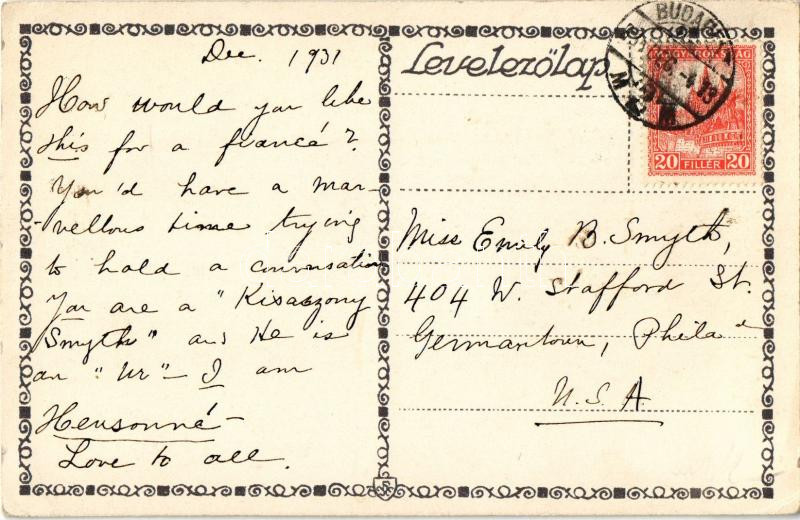 Dec. 1931
How would you like
this for a fiancé?
You'd have a mar-
-vellous time trying
to hold a conversation
You are a "Kisaszony
Smyth" and He is
an "Ur" - I am
Hensonné -
Love to all.
Levelezőlap
BUDAPEST
MAGYARORSZÁG
20 FILLÉR 20
Miss Emily B. Smyth,
404 W. Stafford St.
Germantown, Philad
U.S.A